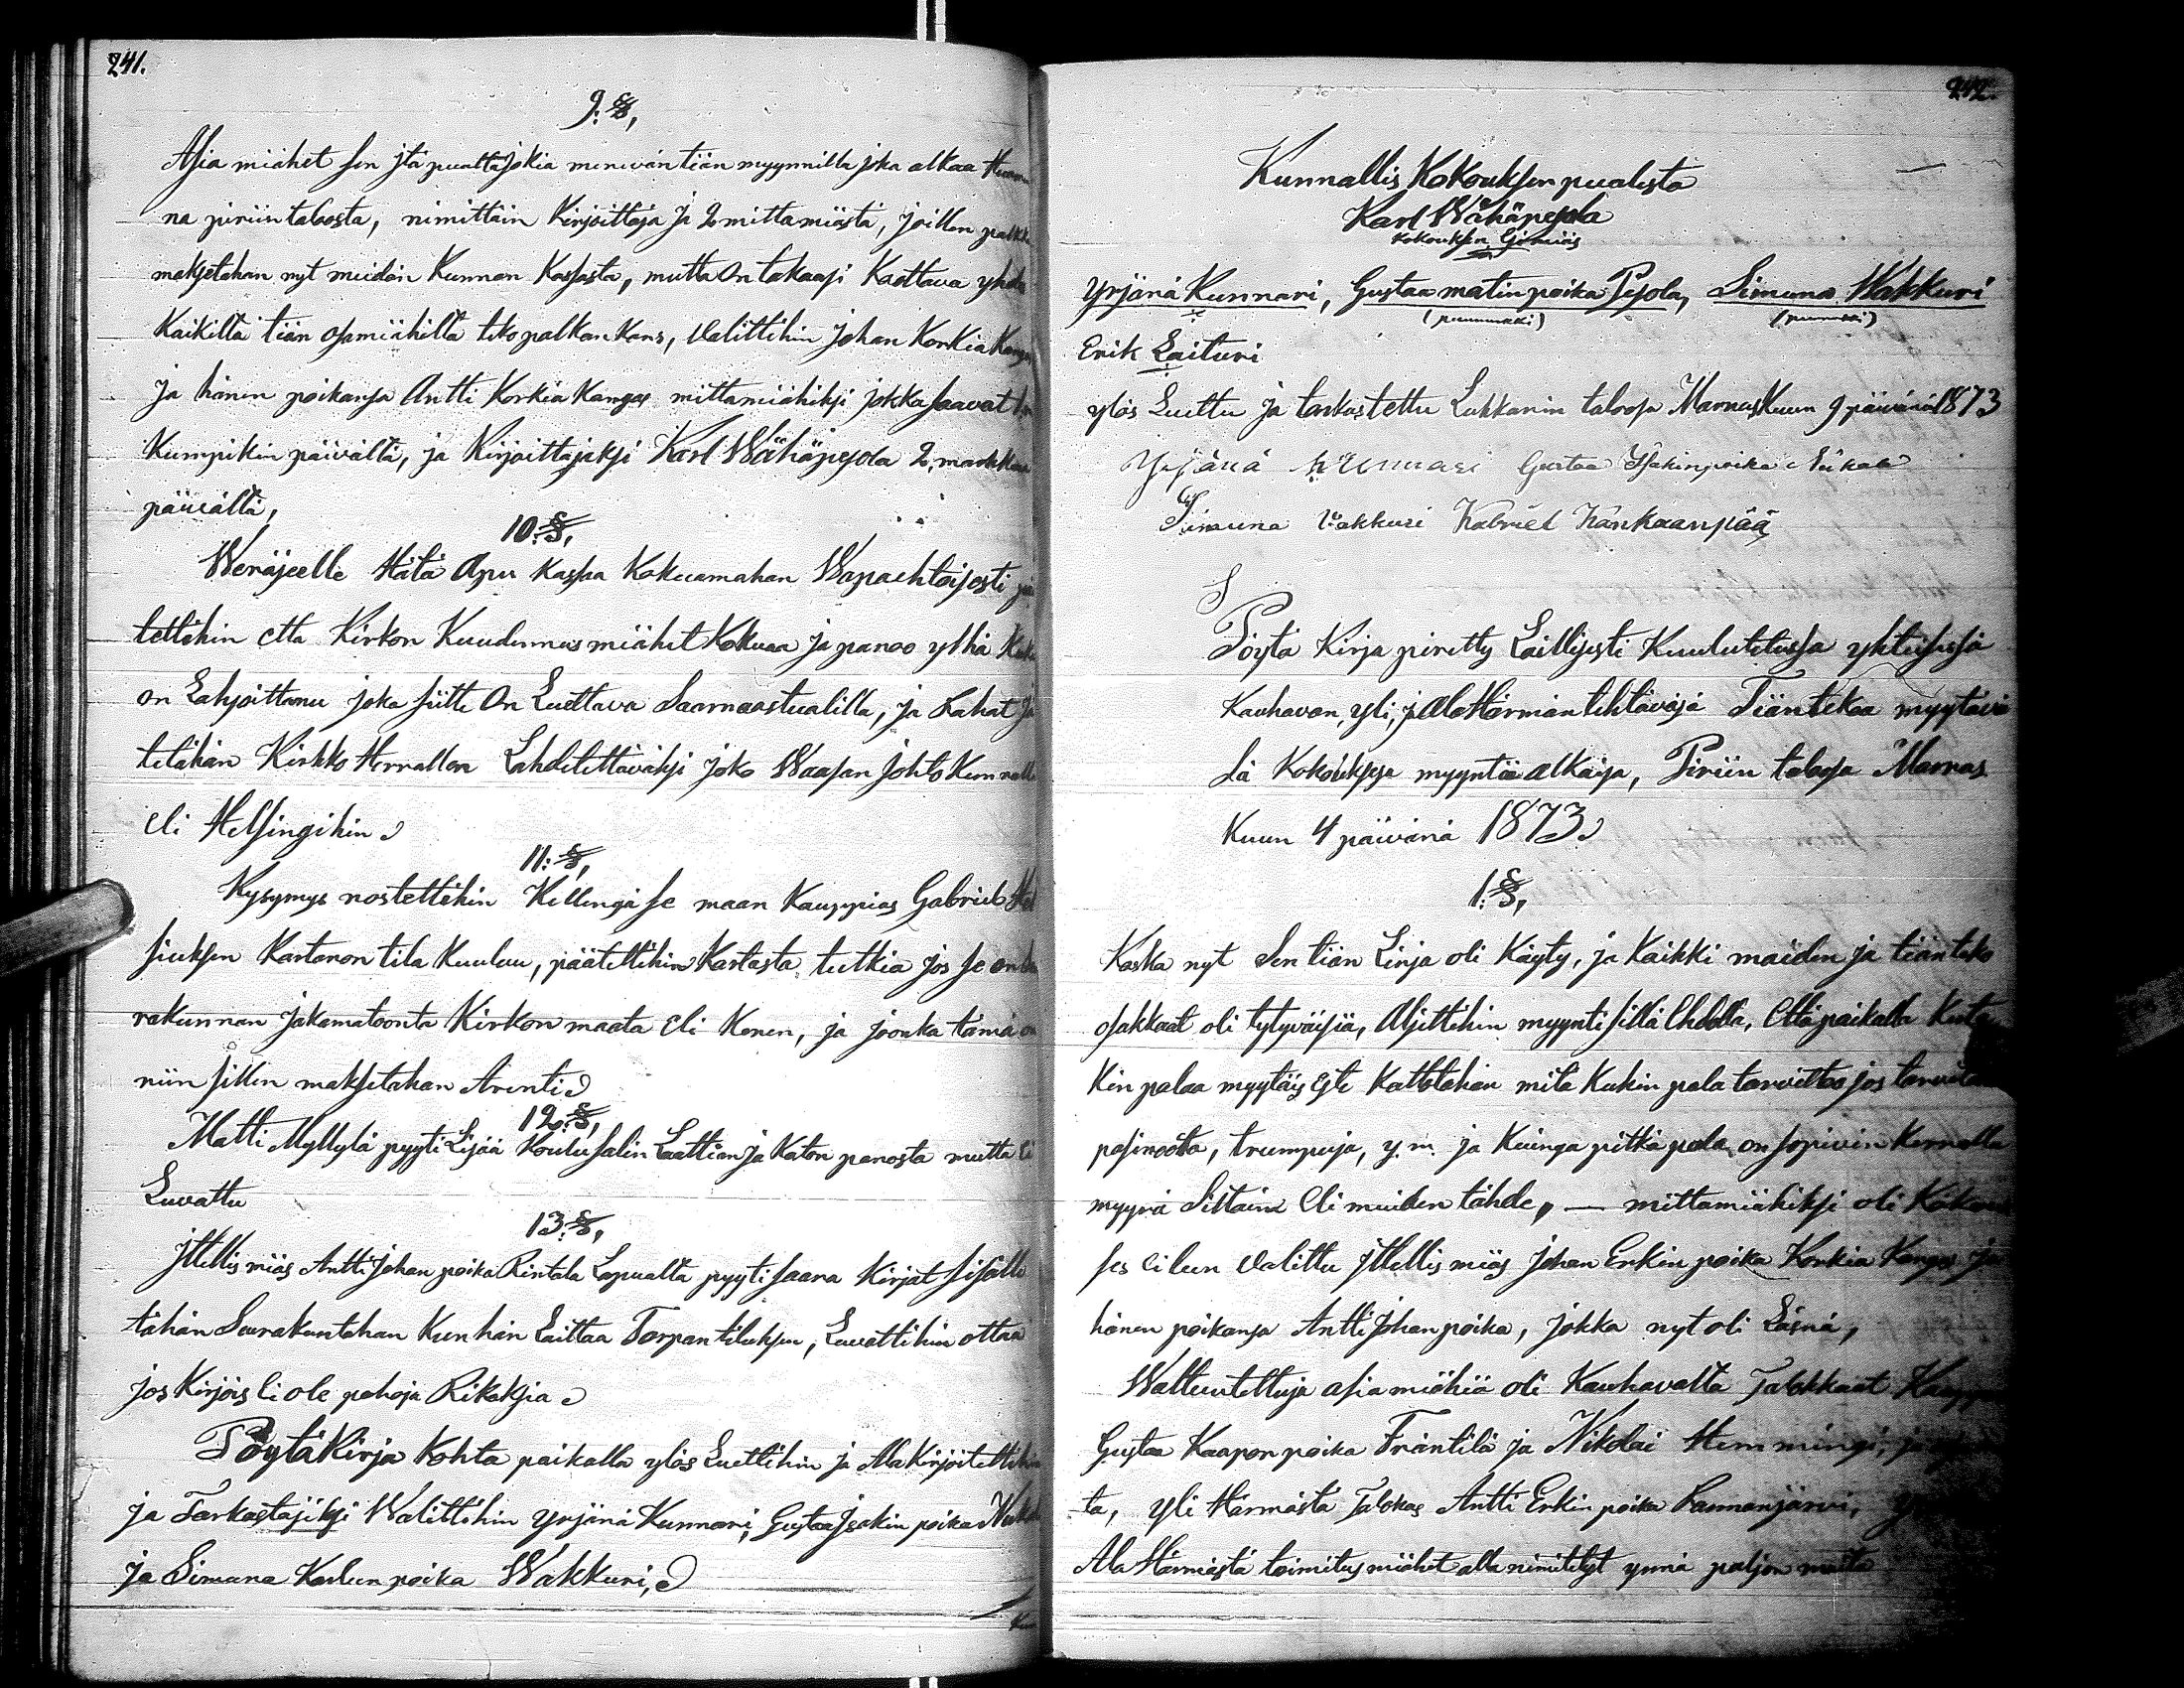 241.
9. §,
Asia miähet sen jtä pualtajokia menevän tiän myynnillä joka alkaa
na piriin talosta, nimittäin Kirjoittaja ja 2 mittamiästä, joillen palkka
maksetahan nyt meidän Kunnan Kassasta, mutta On takaasi Kaottava yhdes
Kaikilta tiän osamiähiltä teko palkan kans, valittihin Johan Korkia Kangas
ja hänen poikansa Antti Korkia Kangas mittamiähiksi jokka saavat
Kumpikin päivältä, ja Kirjoittajaksi Karl Wähäpesola 2, markkaa
päivältä,
10. §,
Weräjeelle Hätä Apu Kassaa Kokuamahan Wapaehtoisesti
tettihin että Kirkon Kuudennusmiähet Kokuaa ja panoo ylhä Kuka
on Lahjoittanu joka sitte On Luettava Saarnaastualilla, ja Rahat
tetähän Kirkko Herrallen Lähdetettäväksi joko Waasan Johto Kunnalle
eli Helsingihin
11. §,
Kysymys nostettihin Kellengä se maan Kauppias Gabriel
siuksen Kartanon tila Kuuluu, päätettihin Kartasta tutkia jos se on
rakunnan jakamatoonta Kirkon maata eli Kenen, ja jonka tämä on
niin sillen maksetahan Arenti
12. §,
Matti Myllylä pyyti Lisää Koulu salin Laattian ja Katon panosta mutta ei
Luvattu
13. §,
jtellis miäs Antti Johan poika Rintala Lapualta pyyti saara Kirjat sisälle
tähän Seurakuntahan Kun hän Laittaa Torpan tiluksen, Luvattihin ottaa
jos Kirjois ei ole pahoja Rikoksia
Pöytä Kirja Kohta paikalla ylös Luettihin ja Alla Kirjoitettihin
ja Tarkastajiksi Walittihin Yrjänä Kunnari, Gustaa Isakin poika
ja Simuna Karlun poika Wakkuri,
242.
Kunnallis Kokouksen puolesta
Karl Wähäpesola
Kokouksen Esimiäs
Yrjänä Kunnari, Gustaa matin poika Pesola, Simuna Wakkuri
(puumerkki) (puumerkki)
Erik Laituri
ylös Luettu ja tarkastettu Lukkarin talossa Marras Kuun 9 päivänä 1873
Yrjänä Kunnari Gustaa Isakinpoika
Simuna Wakkuri Kabriel Kankaanpää
Pöytä Kirja piretty Laillisesti Kuulutetussa yhteisessä
Kauhavan, yli, ja Ala Härmän tehtäväsä Tiänteko myytävä
sä Kokouksesa myyntiä alkaisa, Piriin talosa Marras
Kuun 4 päivänä 1873
1. §,
Koska nyt Sen tiän Linja oli Käyty, ja Kaikki maiden ja tiän teko
osakkaat oli tytyväisiä, Aljettihin myynti sillä Ehdolla, että paikalla
Kin palaa myytäis Este Kattotahan mitä Kukin pala tarvittoo jos
pasinoota, trumpuja, y. m. ja Kuinga pitkä pala on sopivin Kerralla
myyrä Siltain Eli muiden tähde, — mittamiähiksi oli
ses eileen Valittu jtellis miäs Johan Erkin poika Korkia Kangas ja
hänen poikansa Antti Johan poika, jokka nyt oli Läsnä,
Waltuutettuja asia miähiä oli Kauhavalta Talokkaat
Gustaa Kaapon poika Fräntilä ja Nikolai Hemmingi,
ta, yli Härmästä Talokas Antti Erkin poika Pannanjärvi,
Ala Härmästä toimitus miähet alla nimitetyt ynnä paljon muita